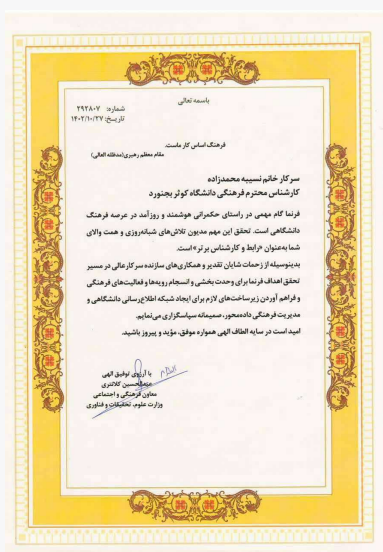 باسمه تعالی
شماره: ۲۹۲۸۰۷
تاریخ: ۱۴۰۲/۱۰/۲۷
فرهنگ اساس کار ماست.
مقام معظم رهبری(مدظله العالی)
سرکار خانم نسیبه محمدزاده
کارشناس محترم فرهنگی دانشگاه کوثر بجنورد
فرنما گام مهمی در راستای حکمرانی هوشمند و روزآمد در عرصه فرهنگ
دانشگاهی است. تحقق این مهم مدیون تلاش‌های شبانه‌روزی و همت والای
شما به‌عنوان «رابط و کارشناس برتر» است.
بدینوسیله از زحمات شایان تقدیر و همکاری‌های سازنده سرکارعالی در مسیر
تحقق اهداف فرنما برای وحدت بخشی و انسجام رویه‌ها و فعالیت‌های فرهنگی
و فراهم آوردن زیرساخت‌های لازم برای ایجاد شبکه اطلاع‌رسانی دانشگاهی و
مدیریت فرهنگی داده‌محور، صمیمانه سپاسگزاری می‌نمایم.
امید است در سایه الطاف الهی همواره موفق، مؤید و پیروز باشید.
با آرزوی توفیق الهی
عبدالحسین کلانتری
معاون فرهنگی و اجتماعی
وزارت علوم، تحقیقات و فناوری